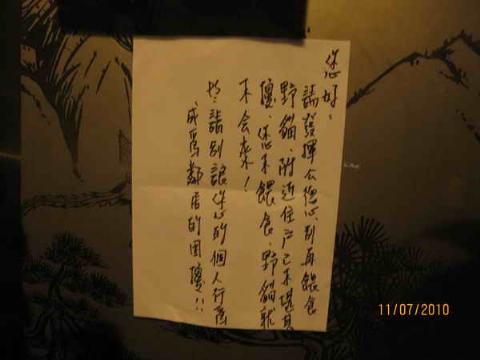 您好,
請發揮公德心別再餵食
野貓、附近住戶已不堪其
擾、您不餵食、野貓就
不会來!
請別讓您的個人行為
成為鄰居的困擾!!
11/07/2010